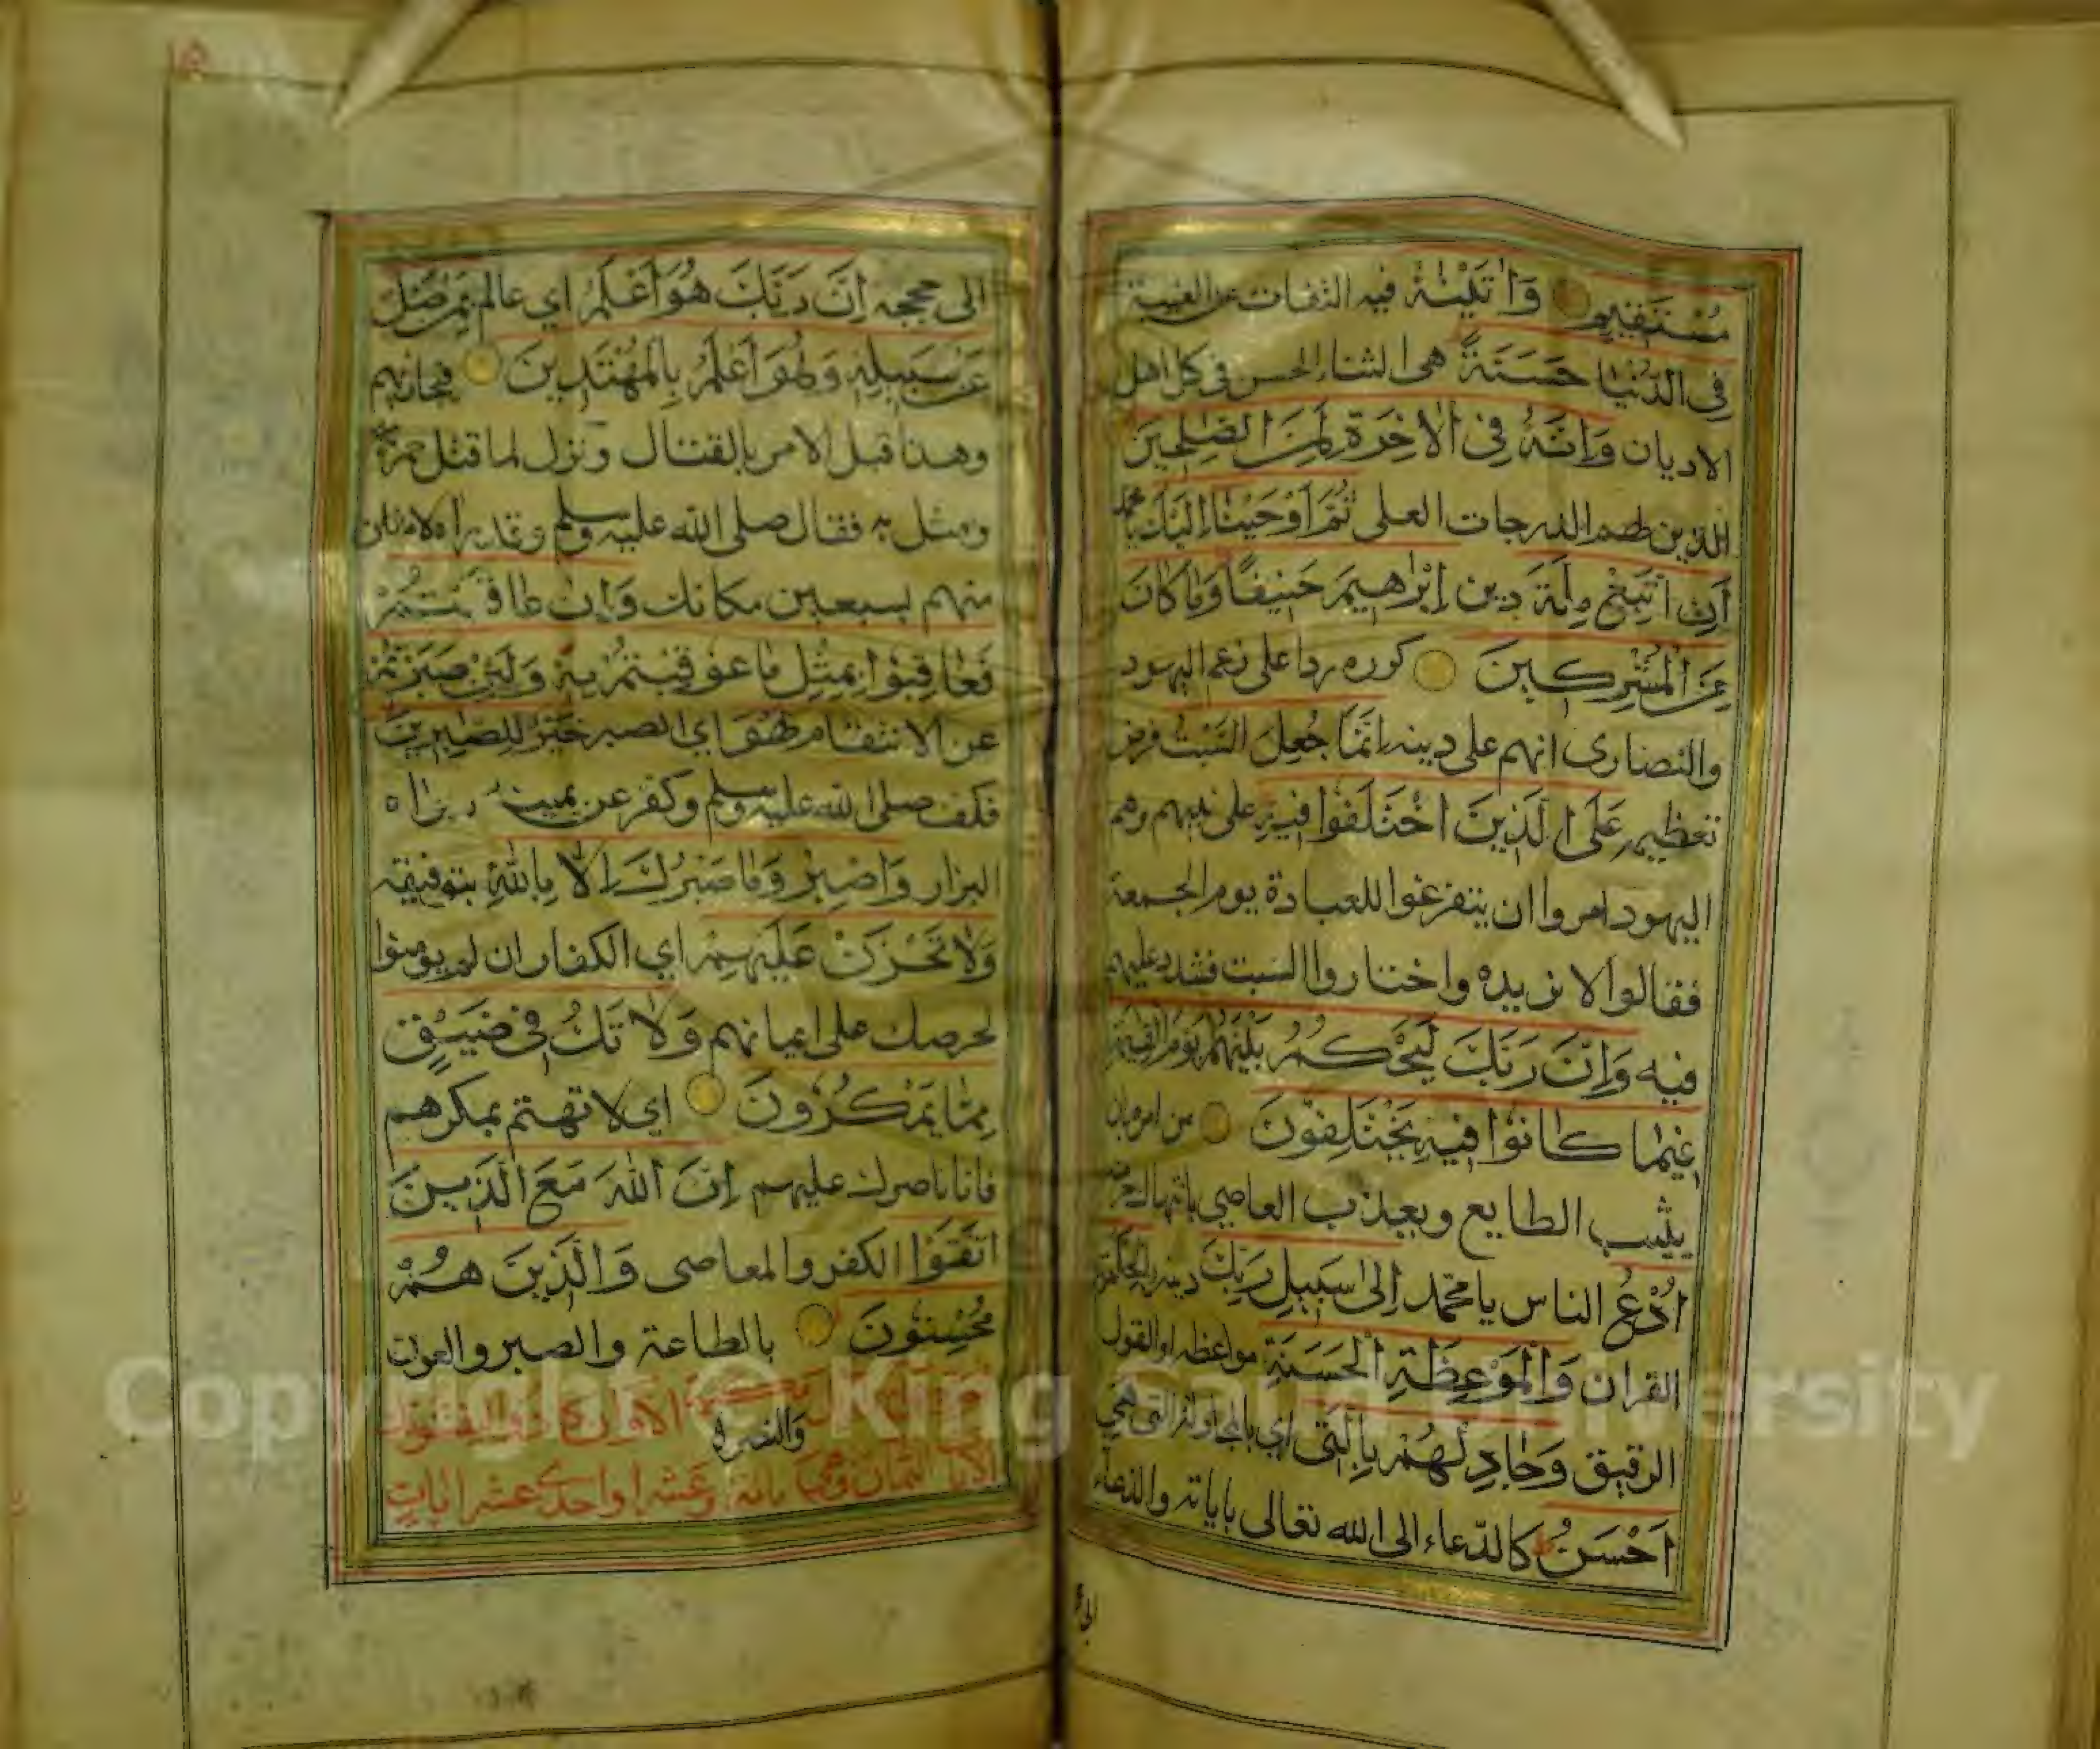 مُسْتَقِيمٍ وَاٰتَيْنٰهُ فيه التفات عن الغيبة
فِي الدُّنْيَا حَسَنَةً هي الثناء الحسن في كل اهل
الاديان وَاِنَّهُ فِي الْاٰخِرَةِ لَمِنَ الصّٰلِحِينَ
الذين لهم الدرجات العلى ثُمَّ اَوْحَيْنَا اِلَيْكَ يا محمد
اَنِ اتَّبِعْ مِلَّةَ دين اِبْرٰهِيمَ حَنِيفًا وَمَا كَانَ
مِنَ الْمُشْرِكِينَ كرره ردا على زعم اليهود
والنصارى انهم على دينه اِنَّمَا جُعِلَ السَّبْتُ فرض
تعظيمه عَلَى الَّذِينَ اخْتَلَفُوا فِيهِ على نبيهم وهم
اليهود امروا ان يتفرغوا للعبادة يوم الجمعة
فقالوا لا نريده واختاروا السبت فشدد عليهم
فيه وَاِنَّ رَبَّكَ لَيَحْكُمُ بَيْنَهُمْ يَوْمَ الْقِيٰمَةِ
فِيمَا كَانُوا فِيهِ يَخْتَلِفُونَ من امره بان
يثيب الطايع ويعذب العاصي بانتهاك
اُدْعُ الناس يا محمد اِلٰى سَبِيلِ رَبِّكَ دينه بِالْحِكْمَةِ
القران وَالْمَوْعِظَةِ الْحَسَنَةِ مواعظه او القول
الرقيق وَجَادِلْهُمْ بِالَّتِي اي بالمجادلة التي هِيَ
اَحْسَنُ كالدعاء الى الله تعالى باياته والدعاء
الى حججه اِنَّ رَبَّكَ هُوَ اَعْلَمُ اي عالم بِمَنْ ضَلَّ
عَنْ سَبِيلِهِ وَهُوَ اَعْلَمُ بِالْمُهْتَدِينَ فيجازيهم
وهذا قبل الامر بالقتال ونزل لما قتل حمزة
ومثل به فقال صلى الله عليه وسلم وقد راه لامثلن
منهم بسبعين مكانك وَاِنْ عَاقَبْتُمْ
فَعَاقِبُوا بِمِثْلِ مَا عُوقِبْتُمْ بِهِ وَلَئِنْ صَبَرْتُمْ
عن الانتقام لَهُوَ اي الصبر خَيْرٌ لِلصّٰبِرِينَ
فكف صلى الله عليه وسلم وكفر عن يمينه رواه
البزار وَاصْبِرْ وَمَا صَبْرُكَ اِلَّا بِاللّٰهِ بتوفيقه
وَلَا تَحْزَنْ عَلَيْهِمْ اي الكفار ان لم يؤمنوا
لحرصك على ايمانهم وَلَا تَكُ فِي ضَيْقٍ
مِمَّا يَمْكُرُونَ اي لا تهتم بمكرهم
فانا ناصرك عليهم اِنَّ اللّٰهَ مَعَ الَّذِينَ
اتَّقَوْا الكفر والمعاصي وَالَّذِينَ هُمْ
مُحْسِنُونَ بالطاعة والصبر والعون
والنصره
الثمان وهي مائة وعشر او احدى عشر ايات
الى
Copyright © King Saud University